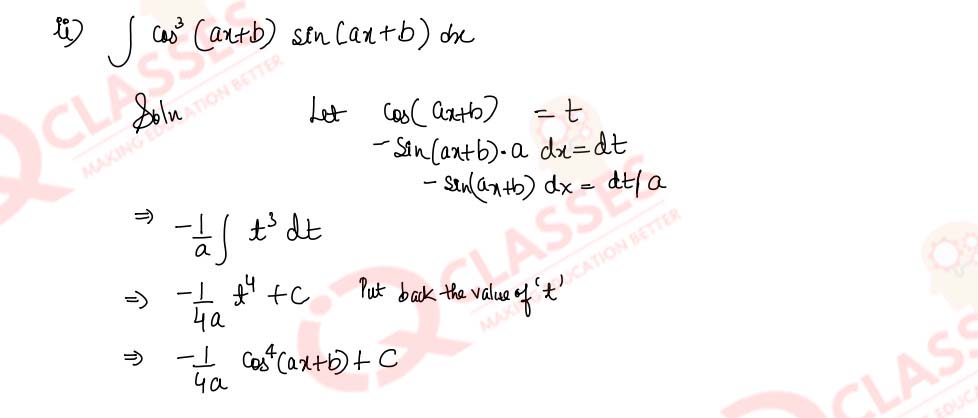 ii) ∫ cos³ (ax+b) sin (ax+b) dx
Soln Let cos(ax+b) = t
-Sin(ax+b)·a dx = dt
- sin(ax+b) dx = dt/a
⇒ -1/a ∫ t³ dt
⇒ -1/4a t⁴ + C Put back the value of 't'
⇒ -1/4a cos⁴(ax+b) + C
IQ CLASSES
MAKING EDUCATION BETTER
IQ CLASSES
MAKING EDUCATION BETTER